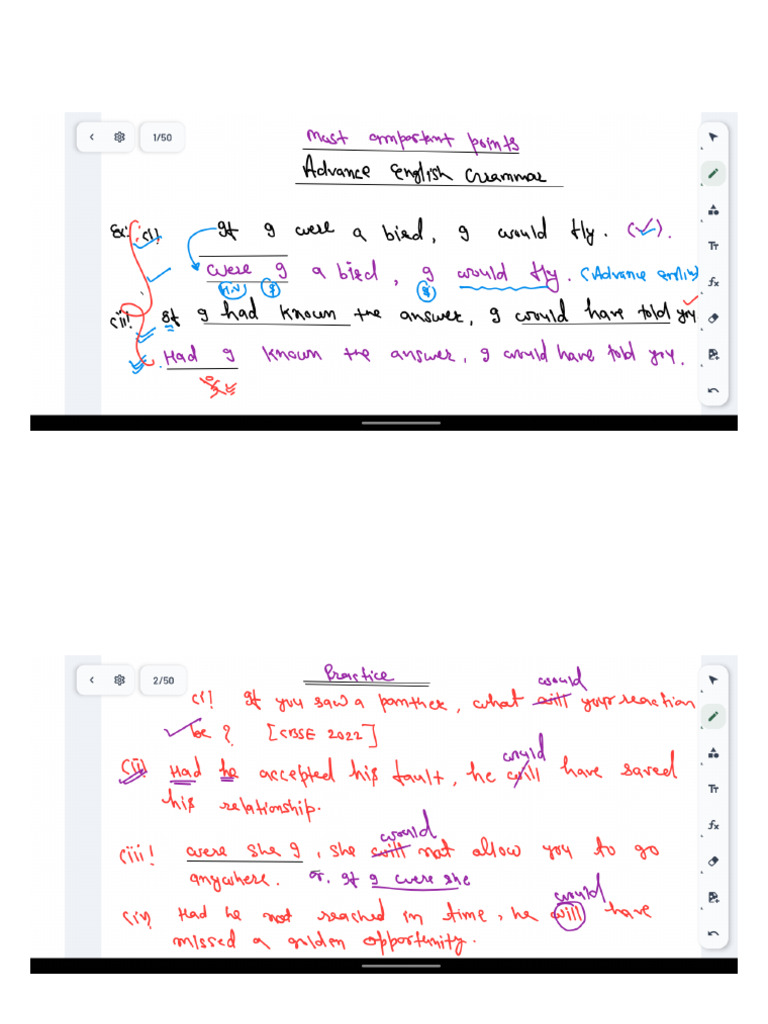 1/50
Most important points
Advance English Grammar
Ex: (i) If I were a bird, I would fly. (✓).
Were I a bird, I would fly. (Advance English)
H.V S S
(ii) If I had known the answer, I would have told you
Had I known the answer, I would have told you.
If
Tт
fx
2/50
Practice
would
(i) If you saw a panther, what will your reaction
be? [CBSE 2022]
would
(ii) Had he accepted his fault, he will have saved
his relationship.
would
(iii) Were she I, she will not allow you to go
anywhere. or. If I were she
would
(iv) Had he not reached in time, he will have
missed a golden opportunity.
Tт
fx